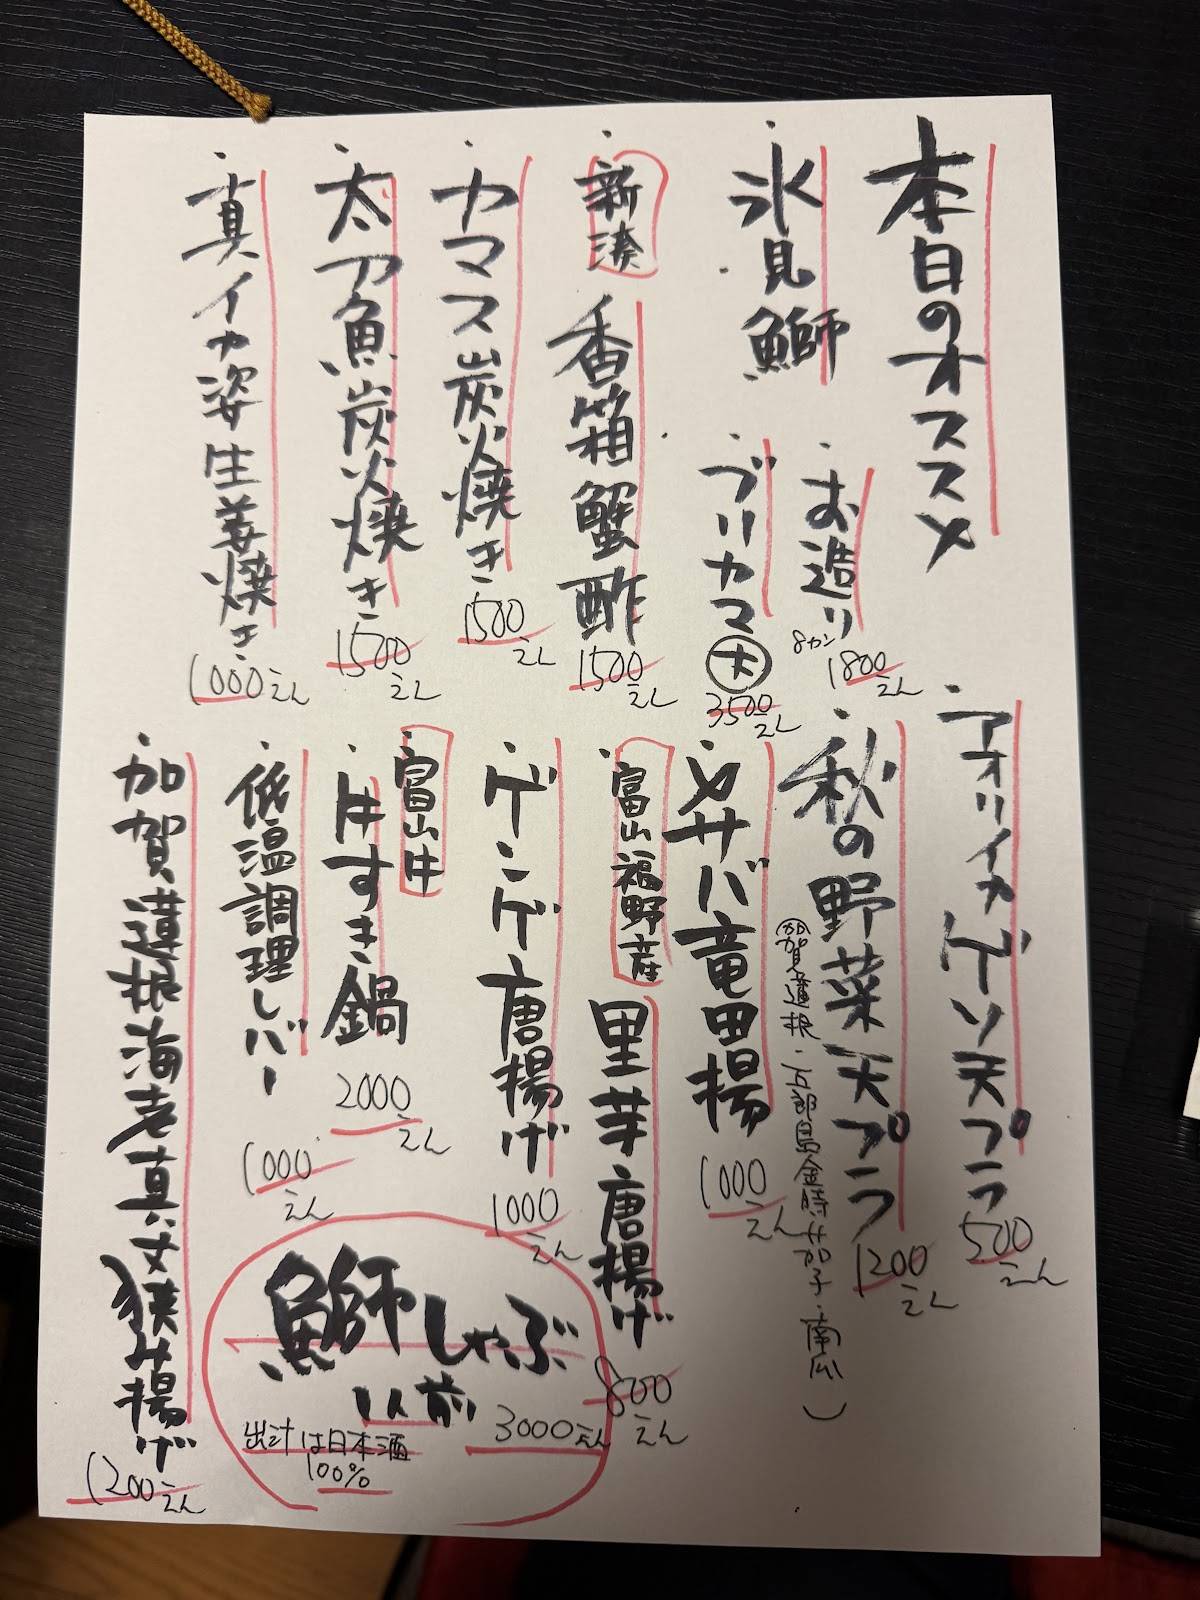 本日のオススメ
氷見鰤
お造り
8カン
1800えん
ブリカマ 大
3500えん
新湊
香箱蟹酢
1500えん
カマス炭火焼き
1500えん
太刀魚炭火焼き
1500えん
真イカ姿生姜焼き
1000えん
アオリイカゲソ天プラ
500えん
秋の野菜天プラ
(加賀蓮根・五郎島金時・茄子・南瓜)
1200えん
メサバ竜田揚
1000えん
富山福野産
里芋唐揚げ
800えん
ゲンゲ唐揚げ
1000えん
富山牛
牛すき鍋
2000えん
低温調理レバー
1000えん
加賀蓮根海老真丈挟み揚げ
1200えん
鰤しゃぶ
1人前
3000えん
出汁は日本酒
100%